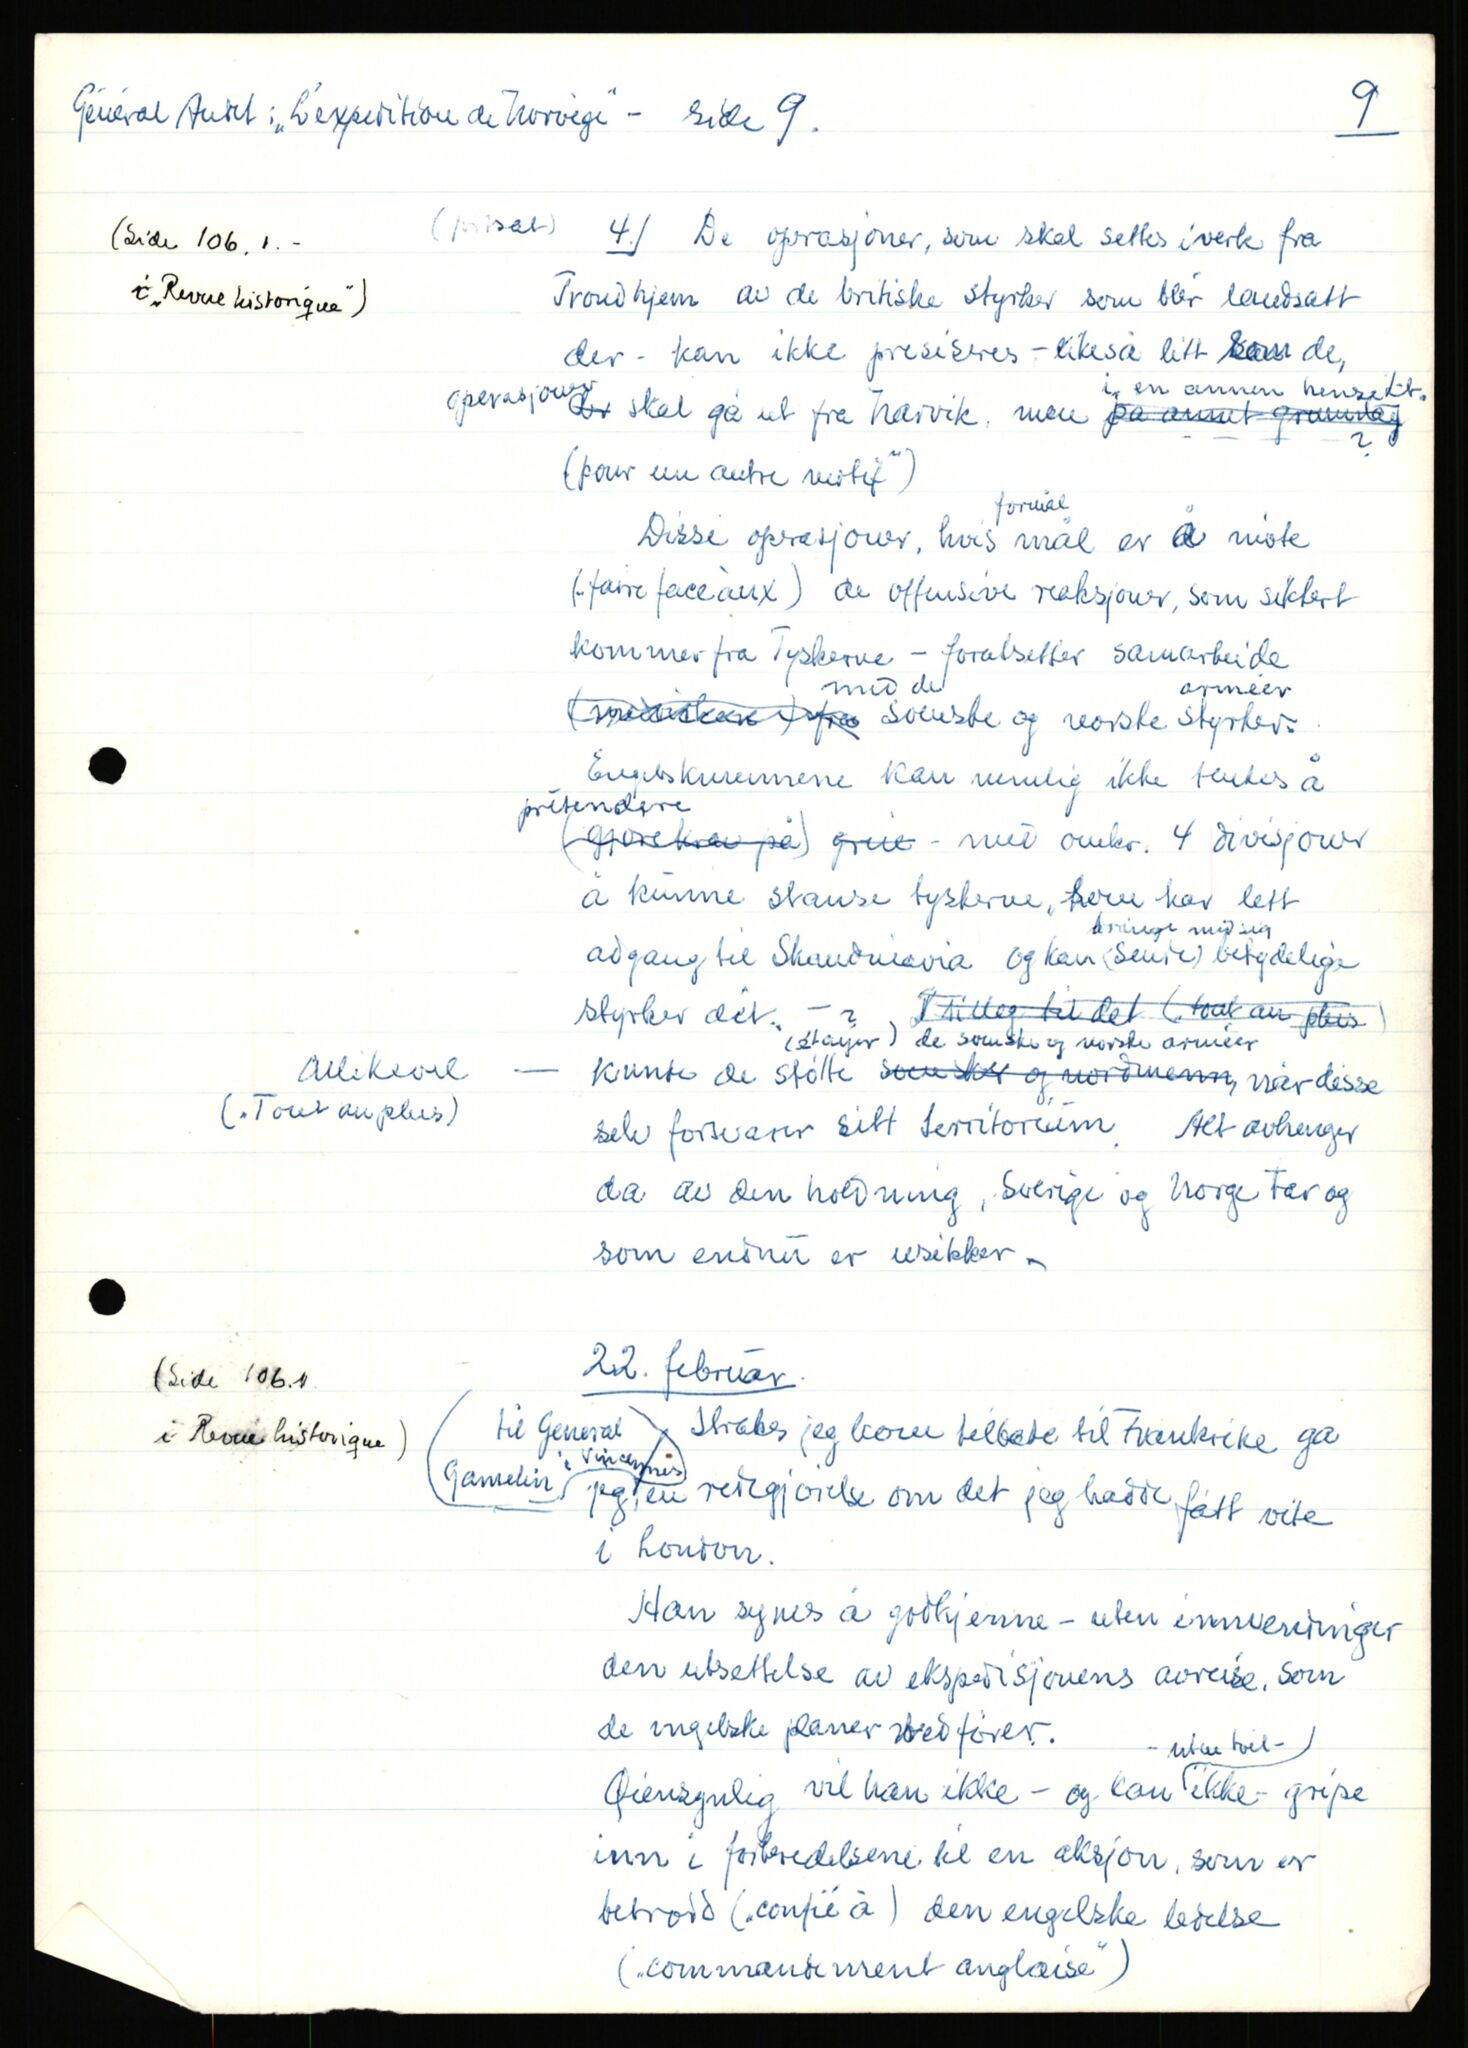 Général Audet: „L'expedition de Norvège" - side 9.
9
(Side 106. 1. -
i „Revue historique")
4./ De operasjoner, som skal settes iverk fra
Trondhjem av de britiske styrker som blir landsatt
der - kan ikke presiseres - likeså litt som de,
i en annen henseikt.
operasjoner der skal gå ut fra Narvik. men på annet grunnlag
?
(pour un autre motif")
formål
Disse operasjoner, hvis mål er å møte
(„faire face aux) de offensive reaksjoner, som sikkert
kommer fra Tyskerne - forutsetter samarbeide
med de armeer
fra svenske og norske styrkers.
Engelskmennene kan nemlig ikke tenkes å
pretendere
(gjøre krav på) - med omkr. 4 divisjoner
å kunne stanse tyskerne, som har lett
bringe med sig
adgang til Skandinavia og kan (sende) betydelige
styrker dit. - ? I tillegg til det („tout au plus)
(„étayer) de svenske og norske armeer
Allikevel — kunde de støtte svensker og nordmenn, når disse
(„Tout au plus)
selv forsvarer sitt territorium. Alt avhenger
da av den holdning, Sverige og Norge tar og
som endnu er usikker.
22. februar.
(Side 106. 11
i Revue historique)
(til General
Gamelin i Vincennes)
Straks jeg kom tilbake til Frankrike ga
jeg en redegjørelse om det jeg hadde fått vite
i London.
Han synes å godkjenne - uten innvendinger
den utsettelse av ekspedisjonens avreise, som
de engelske planer medfører.
- uten tvil -
Øiensynlig vil han ikke - og kan ikke - gripe
inn i forberedelsene til en aksjon, som er
betrodd („confié à) den engelske ledelse
(„commandement anglaise")